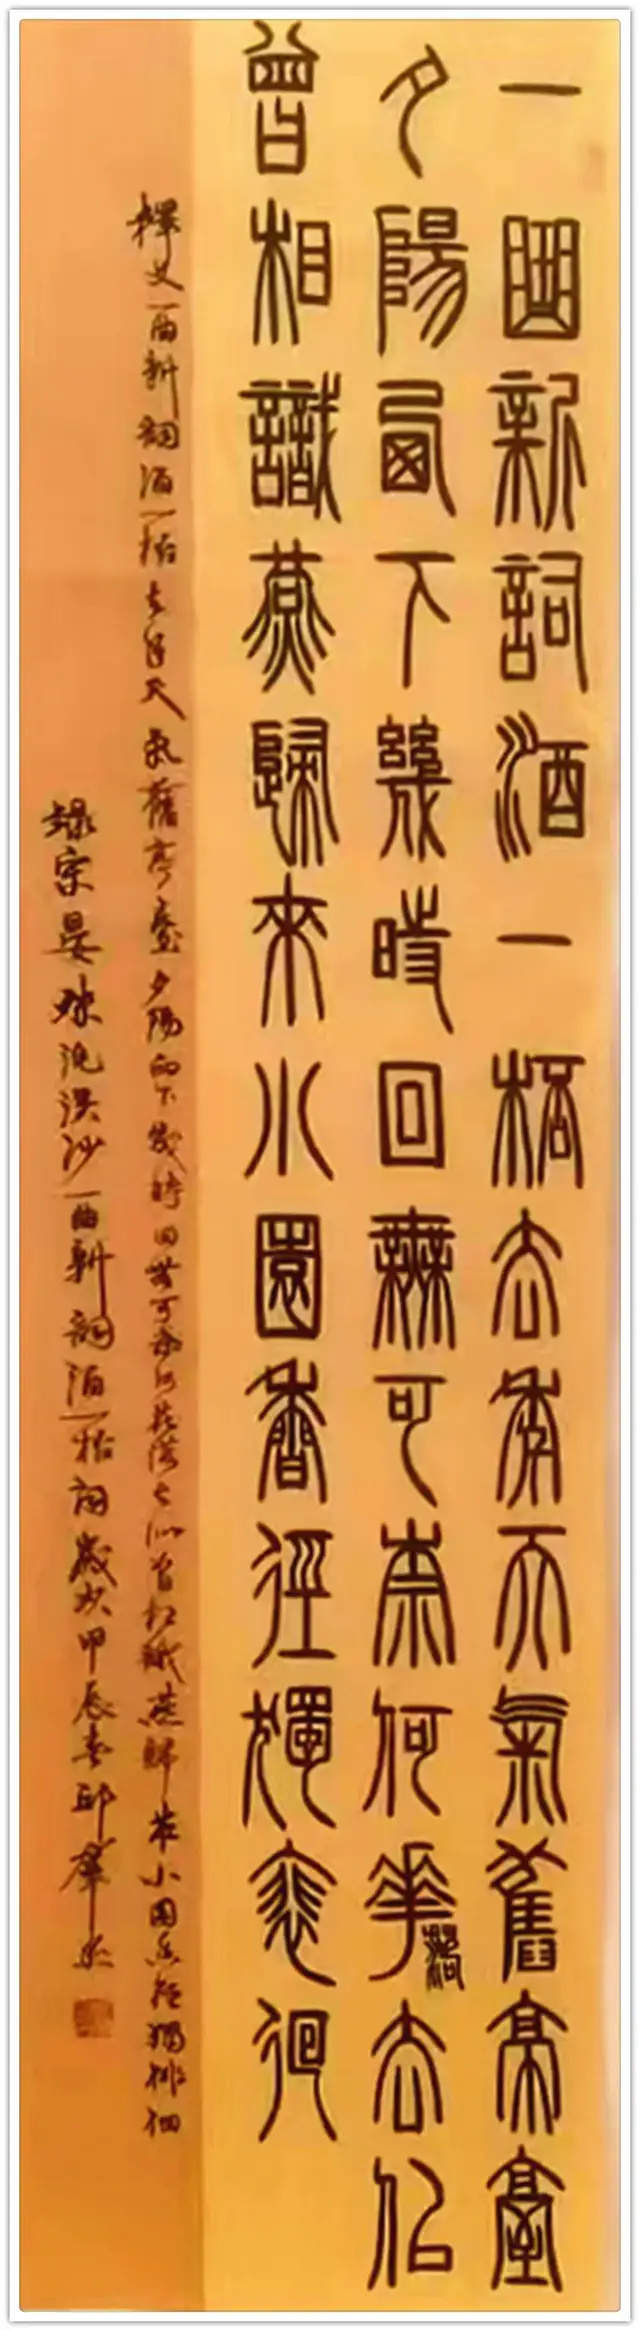 一曲新詞酒一桮去年天氣舊亭臺
夕陽西下幾時回無可柰何華落去佀
曾相識燕歸來小園香徑獨裵徊
釋文一曲新詞酒一杯去年天氣舊亭臺夕陽西下幾時回無可奈何花落去似曾相識燕歸來小園香徑獨徘徊
録宋晏殊浣溪沙一曲新詞酒一杯詞歲次甲辰春邱